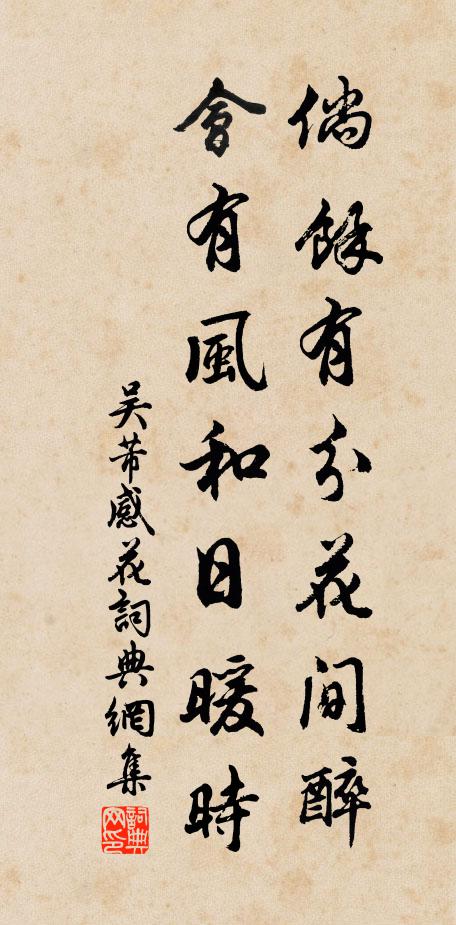 倘餘有分花間醉
會有風和日暖時
吳芾感花詞典網集
詞典網印